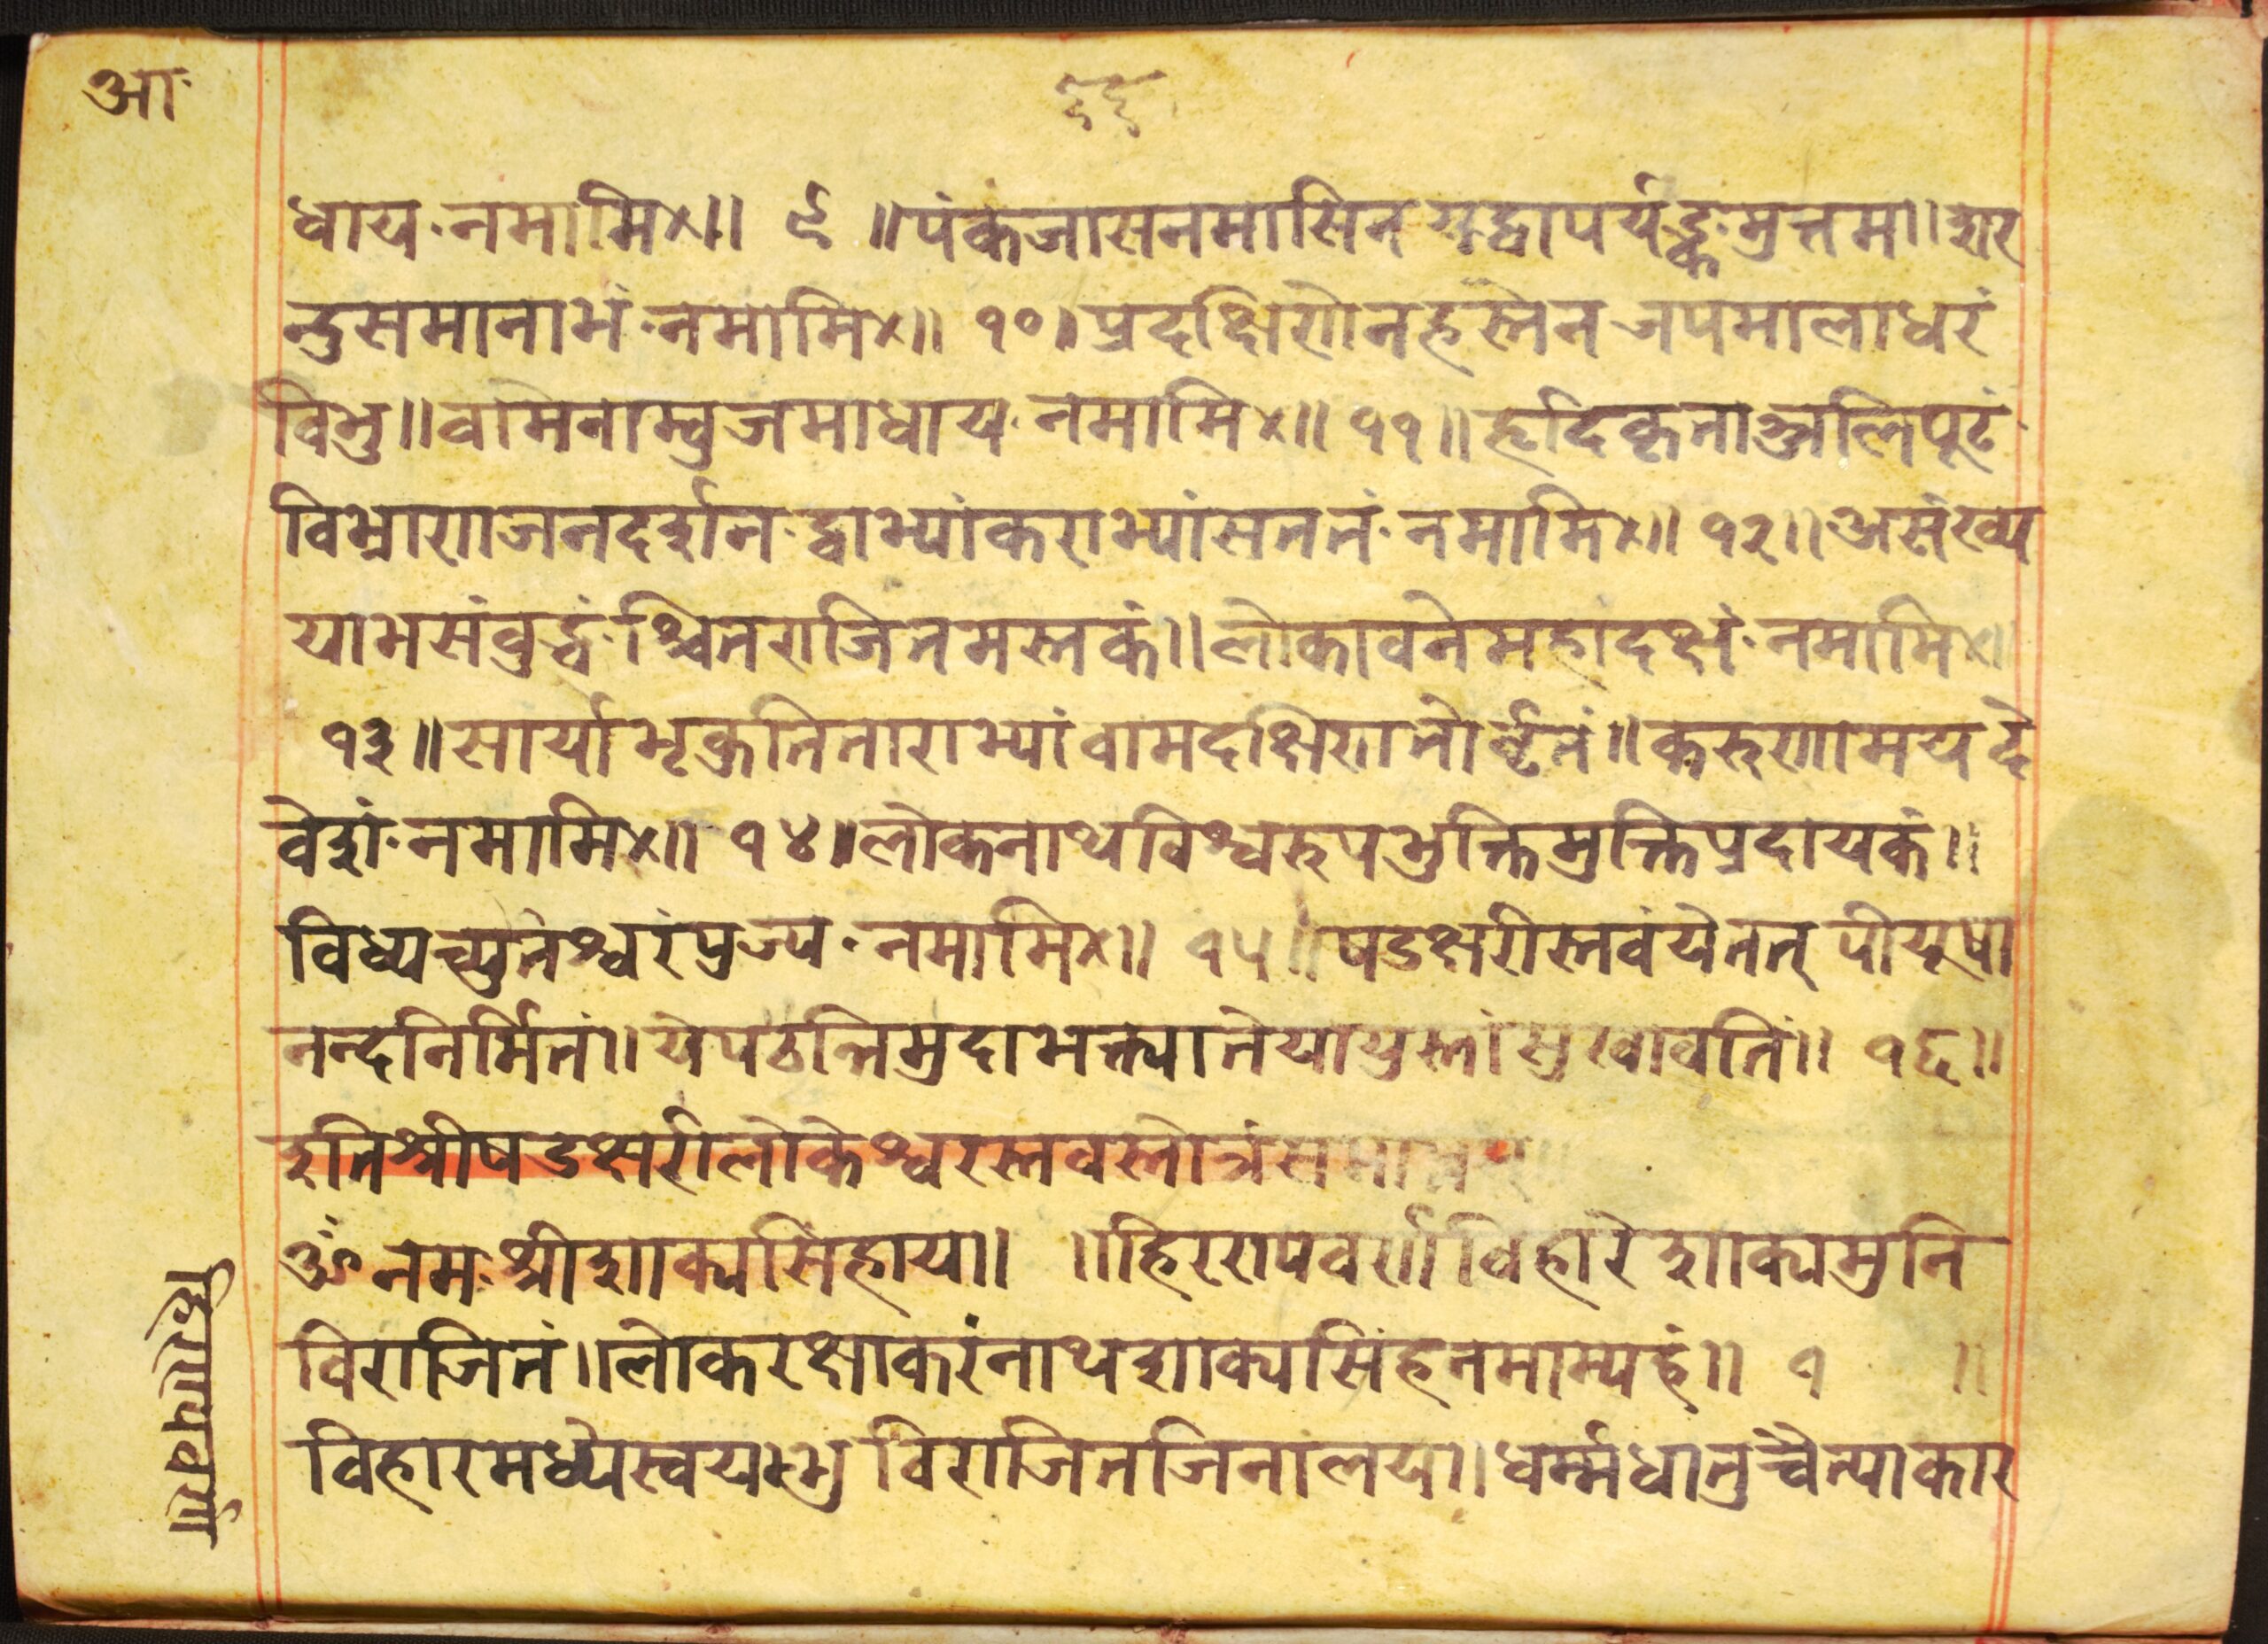 आः
६६
धाय॰नमामि×॥ ९ ॥पंकजासनमासिन यद्वापर्यङ्कमुत्तम॥शर
न्दुसमानाभं॰नमामि×॥ १०॥प्रदक्षिणेनहस्तेन जपमालाधरं
विभु॥वामेनाम्बुजमाधाय॰नमामि×॥ ११॥हृदिकृताञ्जलिपूटं॰
विभ्राणाजनदर्शन॰द्वाभ्यांकराभ्यांसततं॰नमामि×॥ १२॥असंख्य
याभसंबुद्धं॰श्चितराजितमस्तकं॥लोकावनेमहादक्षं॰नमामि×॥
१३॥सार्याभृकुतिताराभ्यांवामदक्षिणतोर्वृतं॥करुणामयदे
वेशं॰नमामि×॥ १४॥लोकनाथविश्वरुपभुक्तिमुक्तिप्रदायकं॥
विध्यच्युतेश्वरंप्रज्य॰नमामि×॥ १५॥षडक्षरीस्तवंयेतत् पीयूषा
नन्दनिर्मितं॥येपठन्तिमुदाभक्त्यातेयायुस्तांसुखावतिं॥ १६॥
इतिश्रीषडक्षरीलोकेश्वरस्तवस्तोत्रंसमाप्तम्॥
ॐ नमः श्रीशाक्यसिंहाय॥ ॥हिरणपवर्ण विहारे शाक्यमुनि
विराजितं॥लोकरक्षाकरंनाथशाक्यसिंहनमाम्यहं॥ १ ॥
विहारमध्येस्वयम्भु विराजितजिनालय॥धर्म्मधातुच्चैत्याकार
हिरणपवर्ण